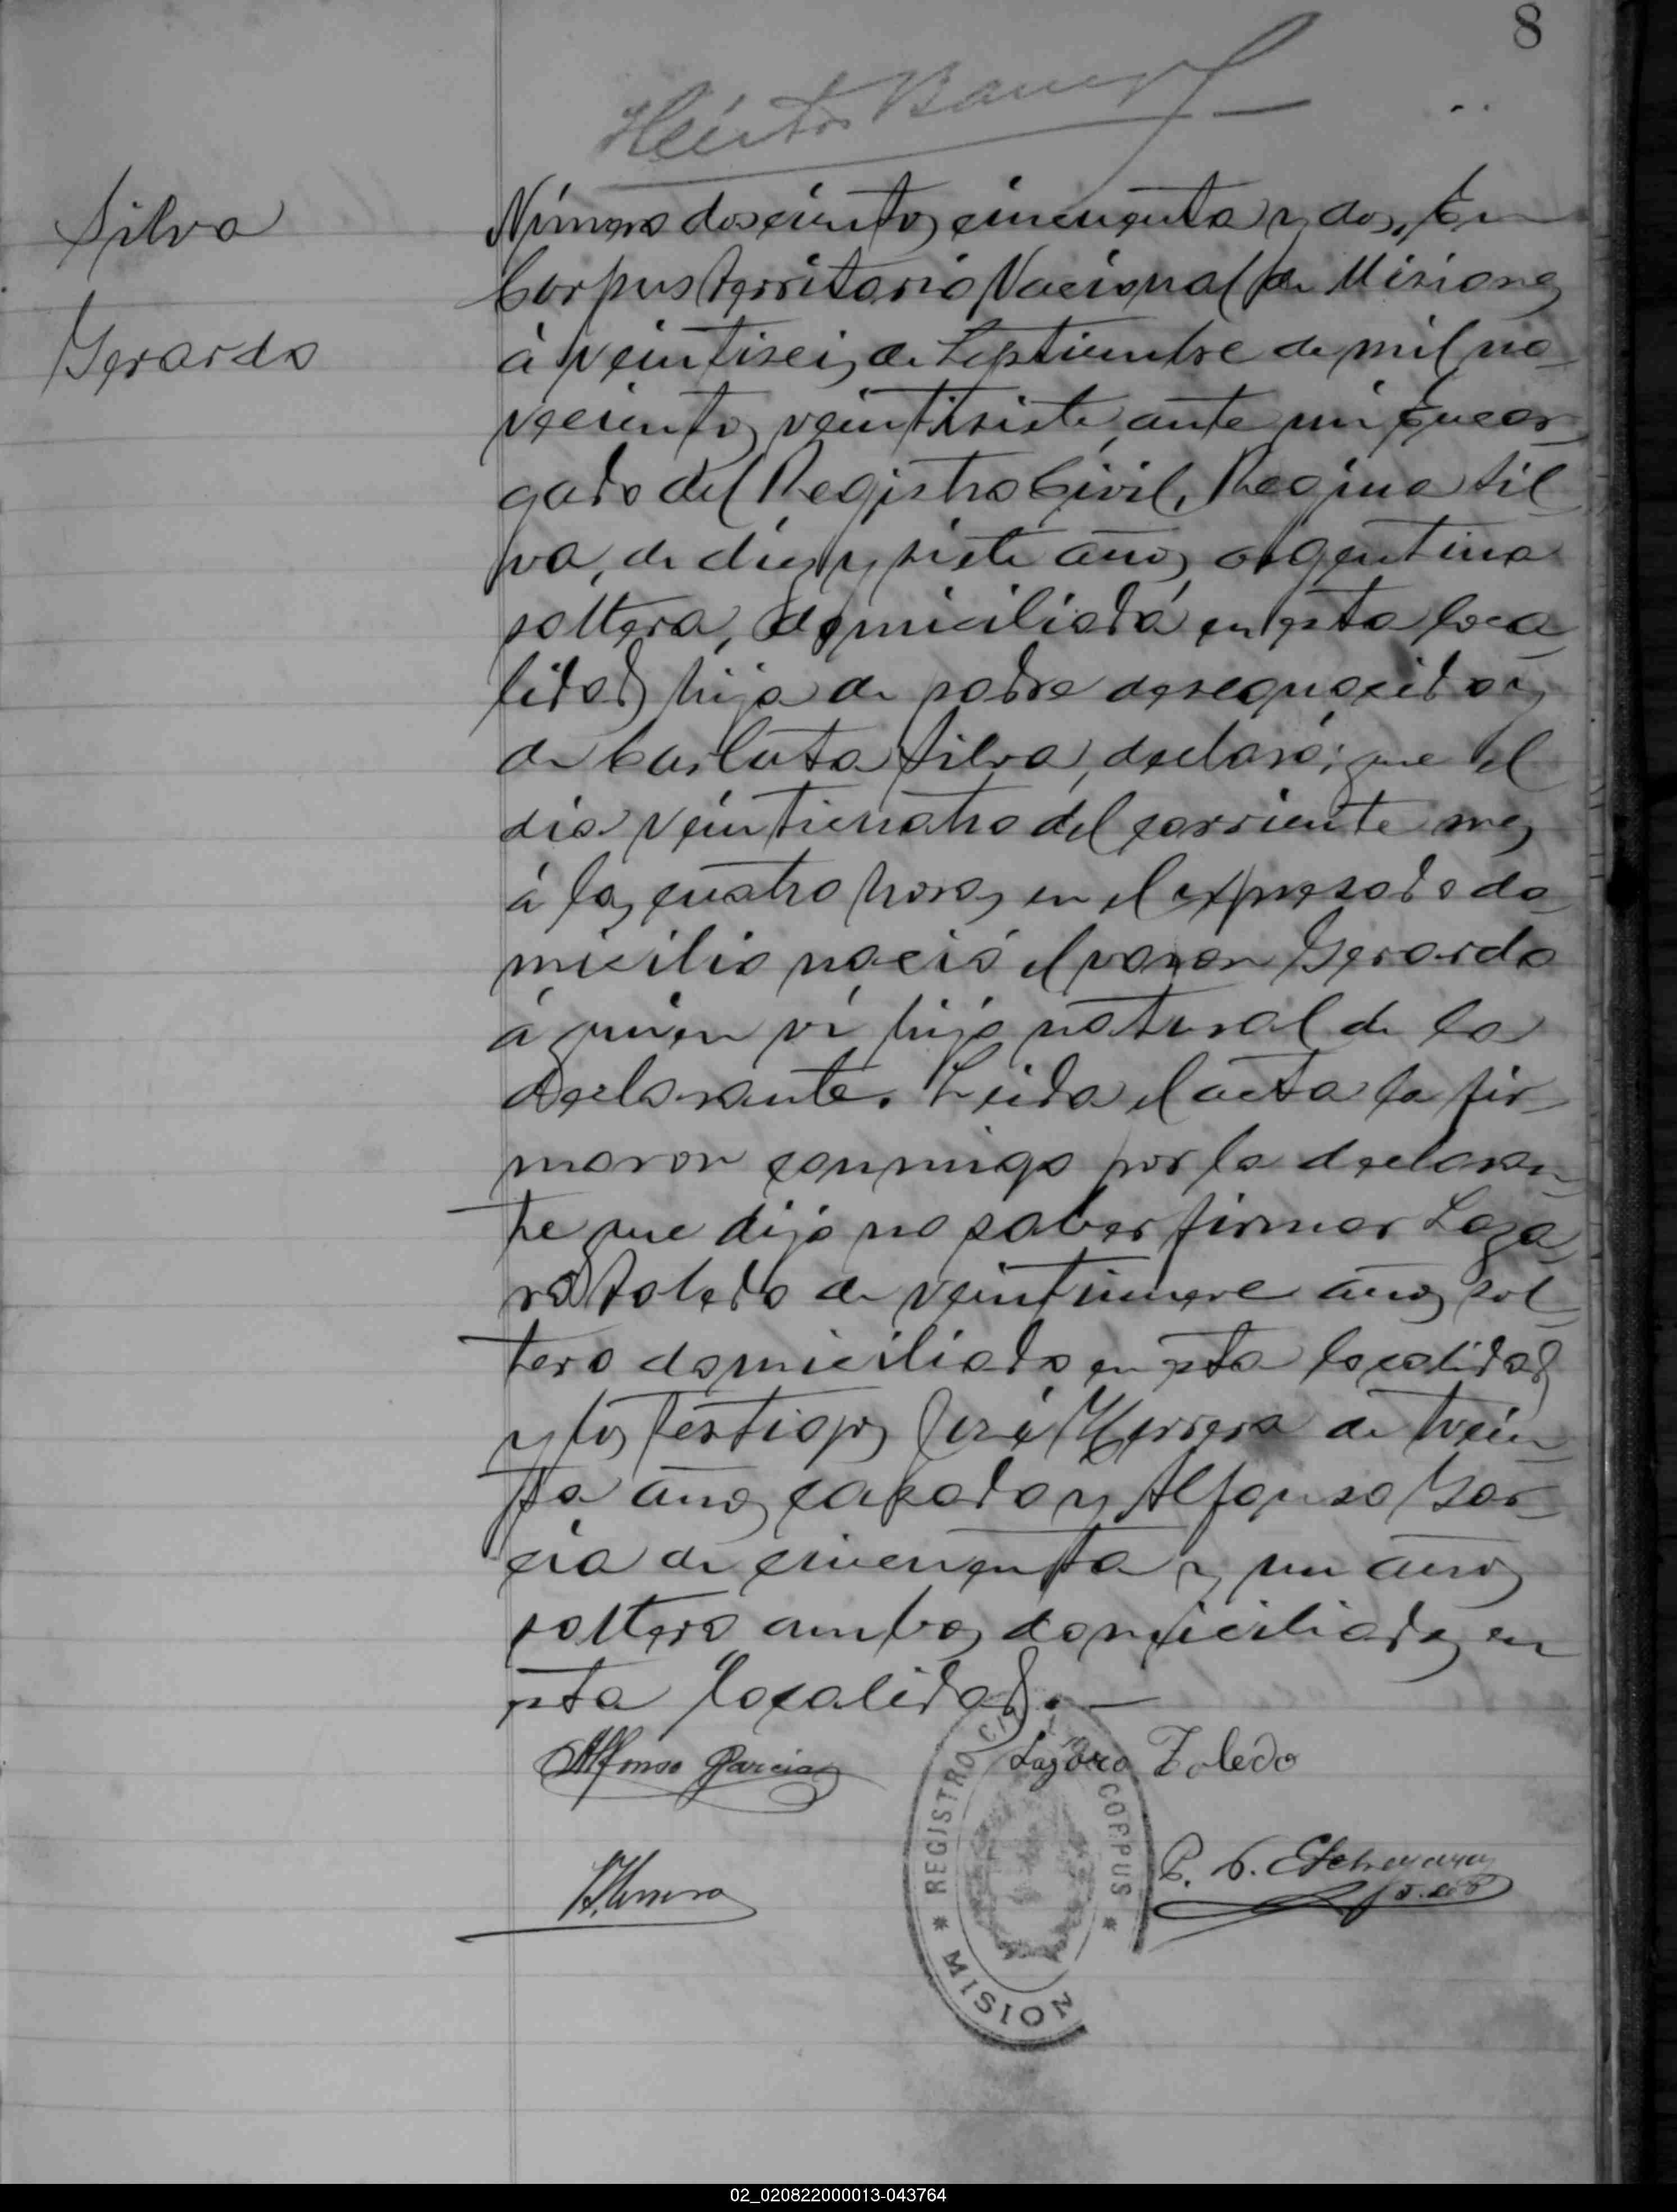 8
Héctor
Silva
Gerardo
Número doscientos cincuenta y dos, En
Corpus Territorio Nacional de Misiones
á veintiseis de Septiembre de mil no-
vecientos veintisiete, ante mi Encar-
gado del Registro Civil, Regina Sil
va, de diez y siete años, argentina
soltera, domiciliada en esta loca
lidad, hija de padre desconocido y
de Carlota Silva, declaró: que el
dia veinticuatro del corriente mes
á las cuatro horas en el expresado do
micilio nació el varon Gerardo
á quien ví hijo natural de la
declarante. Leida el acta la fir-
maron conmigo por la declaran-
te que dijo no saber firmar Laza
ro Toledo de veintinueve años sol-
tero domiciliado en esta localidad
y los testigos José Herrera de trein-
ta años casado y Alfonso Gar-
cia de cincuenta y un años
soltero ambos domiciliados en
esta localidad.—
Alfonso Garcia
Lazaro Toledo
J. Herrera
P. B. Etcheverry
J. de P.
REGISTRO CIVIL CORPUS
* MISION *
02_020822000013-043764